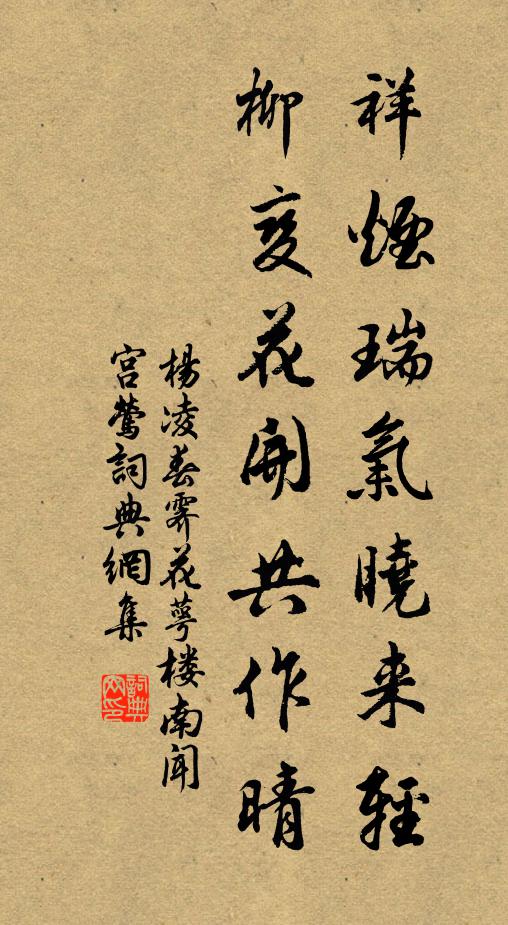 祥煙瑞氣曉来輕
柳变花開共作晴
楊凌春霽花萼楼南聞
宮鶯詞典網集
詞典网印